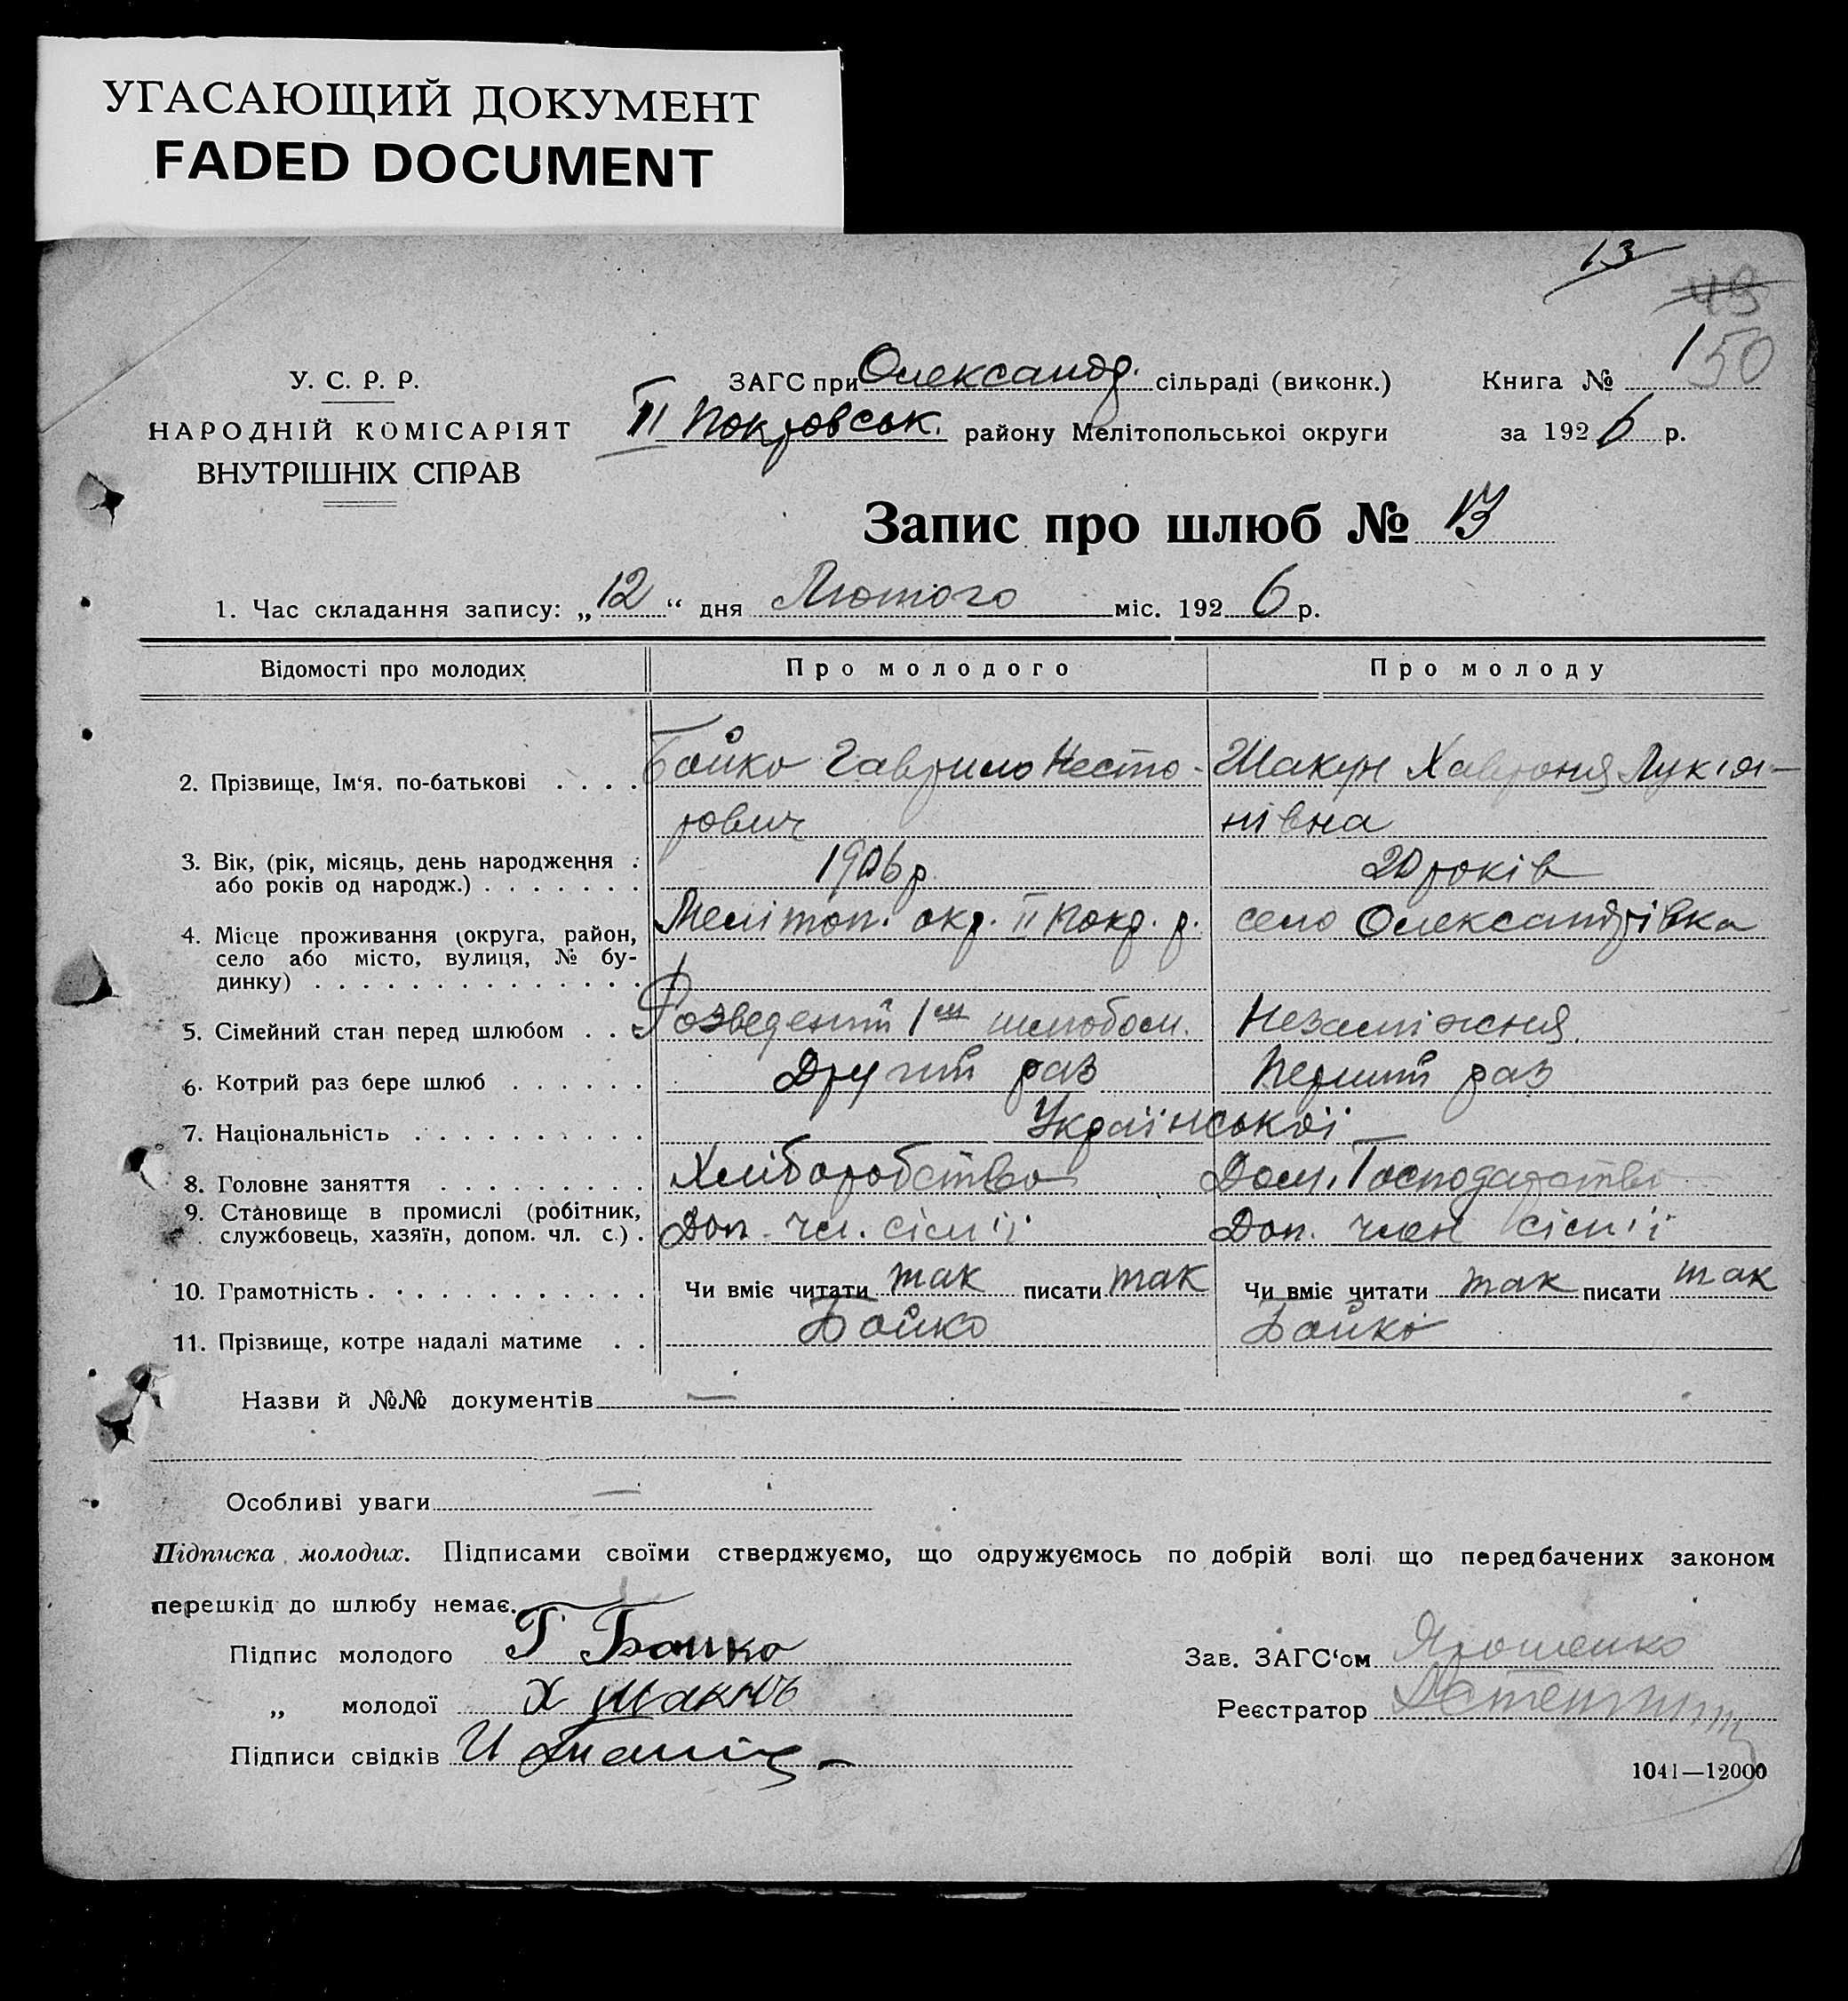 УГАСАЮЩИЙ ДОКУМЕНТ
FADED DOCUMENT
13
49
50
У. С. Р. Р.
НАРОДНІЙ КОМІСАРІЯТ
ВНУТРІШНІХ СПРАВ
ЗАГС при Олександр. сільраді (виконк.)
Книга № 1
II Покровськ. району Мелітопольської округи
за 1926 р.
Запис про шлюб № 13
1. Час складання запису: „12“ дня Лютого міс. 1926 р.
Відомості про молодих
Про молодого
Про молоду
2. Прізвище, Ім‘я. по-батькові . . . .
Бойко Гаврило Несто-
рович
Шакун Хавроня Лукія-
нівна
3. Вік, (рік, місяць, день народження .
або років од народж.) . . . . . . .
1906 р.
20 років
4. Місце проживання (округа, район,
село або місто, вулиця, № бу-
динку) . . . . . . . . . . . . . .
Мелітоп. окр. II Покр. р.
село Олександрівка
5. Сімейний стан перед шлюбом . . .
Розведений 1им шлюбом.
Незаміжня.
6. Котрий раз бере шлюб . . . . . .
Другий раз
Перший раз
7. Національність . . . . . . . . . .
Української
8. Головне заняття . . . . . . . . .
Хліборобство
Дом. Господарство
9. Становище в промислі (робітник,
службовець, хазяїн, допом. чл. с.) .
Доп. чл. сім'ії
Доп. член сім'ії
10. Грамотність . . . . . . . . . . . .
Чи вміє читати так писати так
Чи вміє читати так писати так
11. Прізвище, котре надалі матиме . .
Бойко
Бойко
Назви й №№ документів —
Особливі уваги —
Підписка молодих. Підписами своїми стверджуємо, що одружуємось по добрій волі що передбачених законом
перешкід до шлюбу немає.
Підпис молодого Г Бойко
„ молодої Х Шакунь
Підписи свідків И
Зав. ЗАГС‘ом Ярошенко
Реєстратор
1041—12000